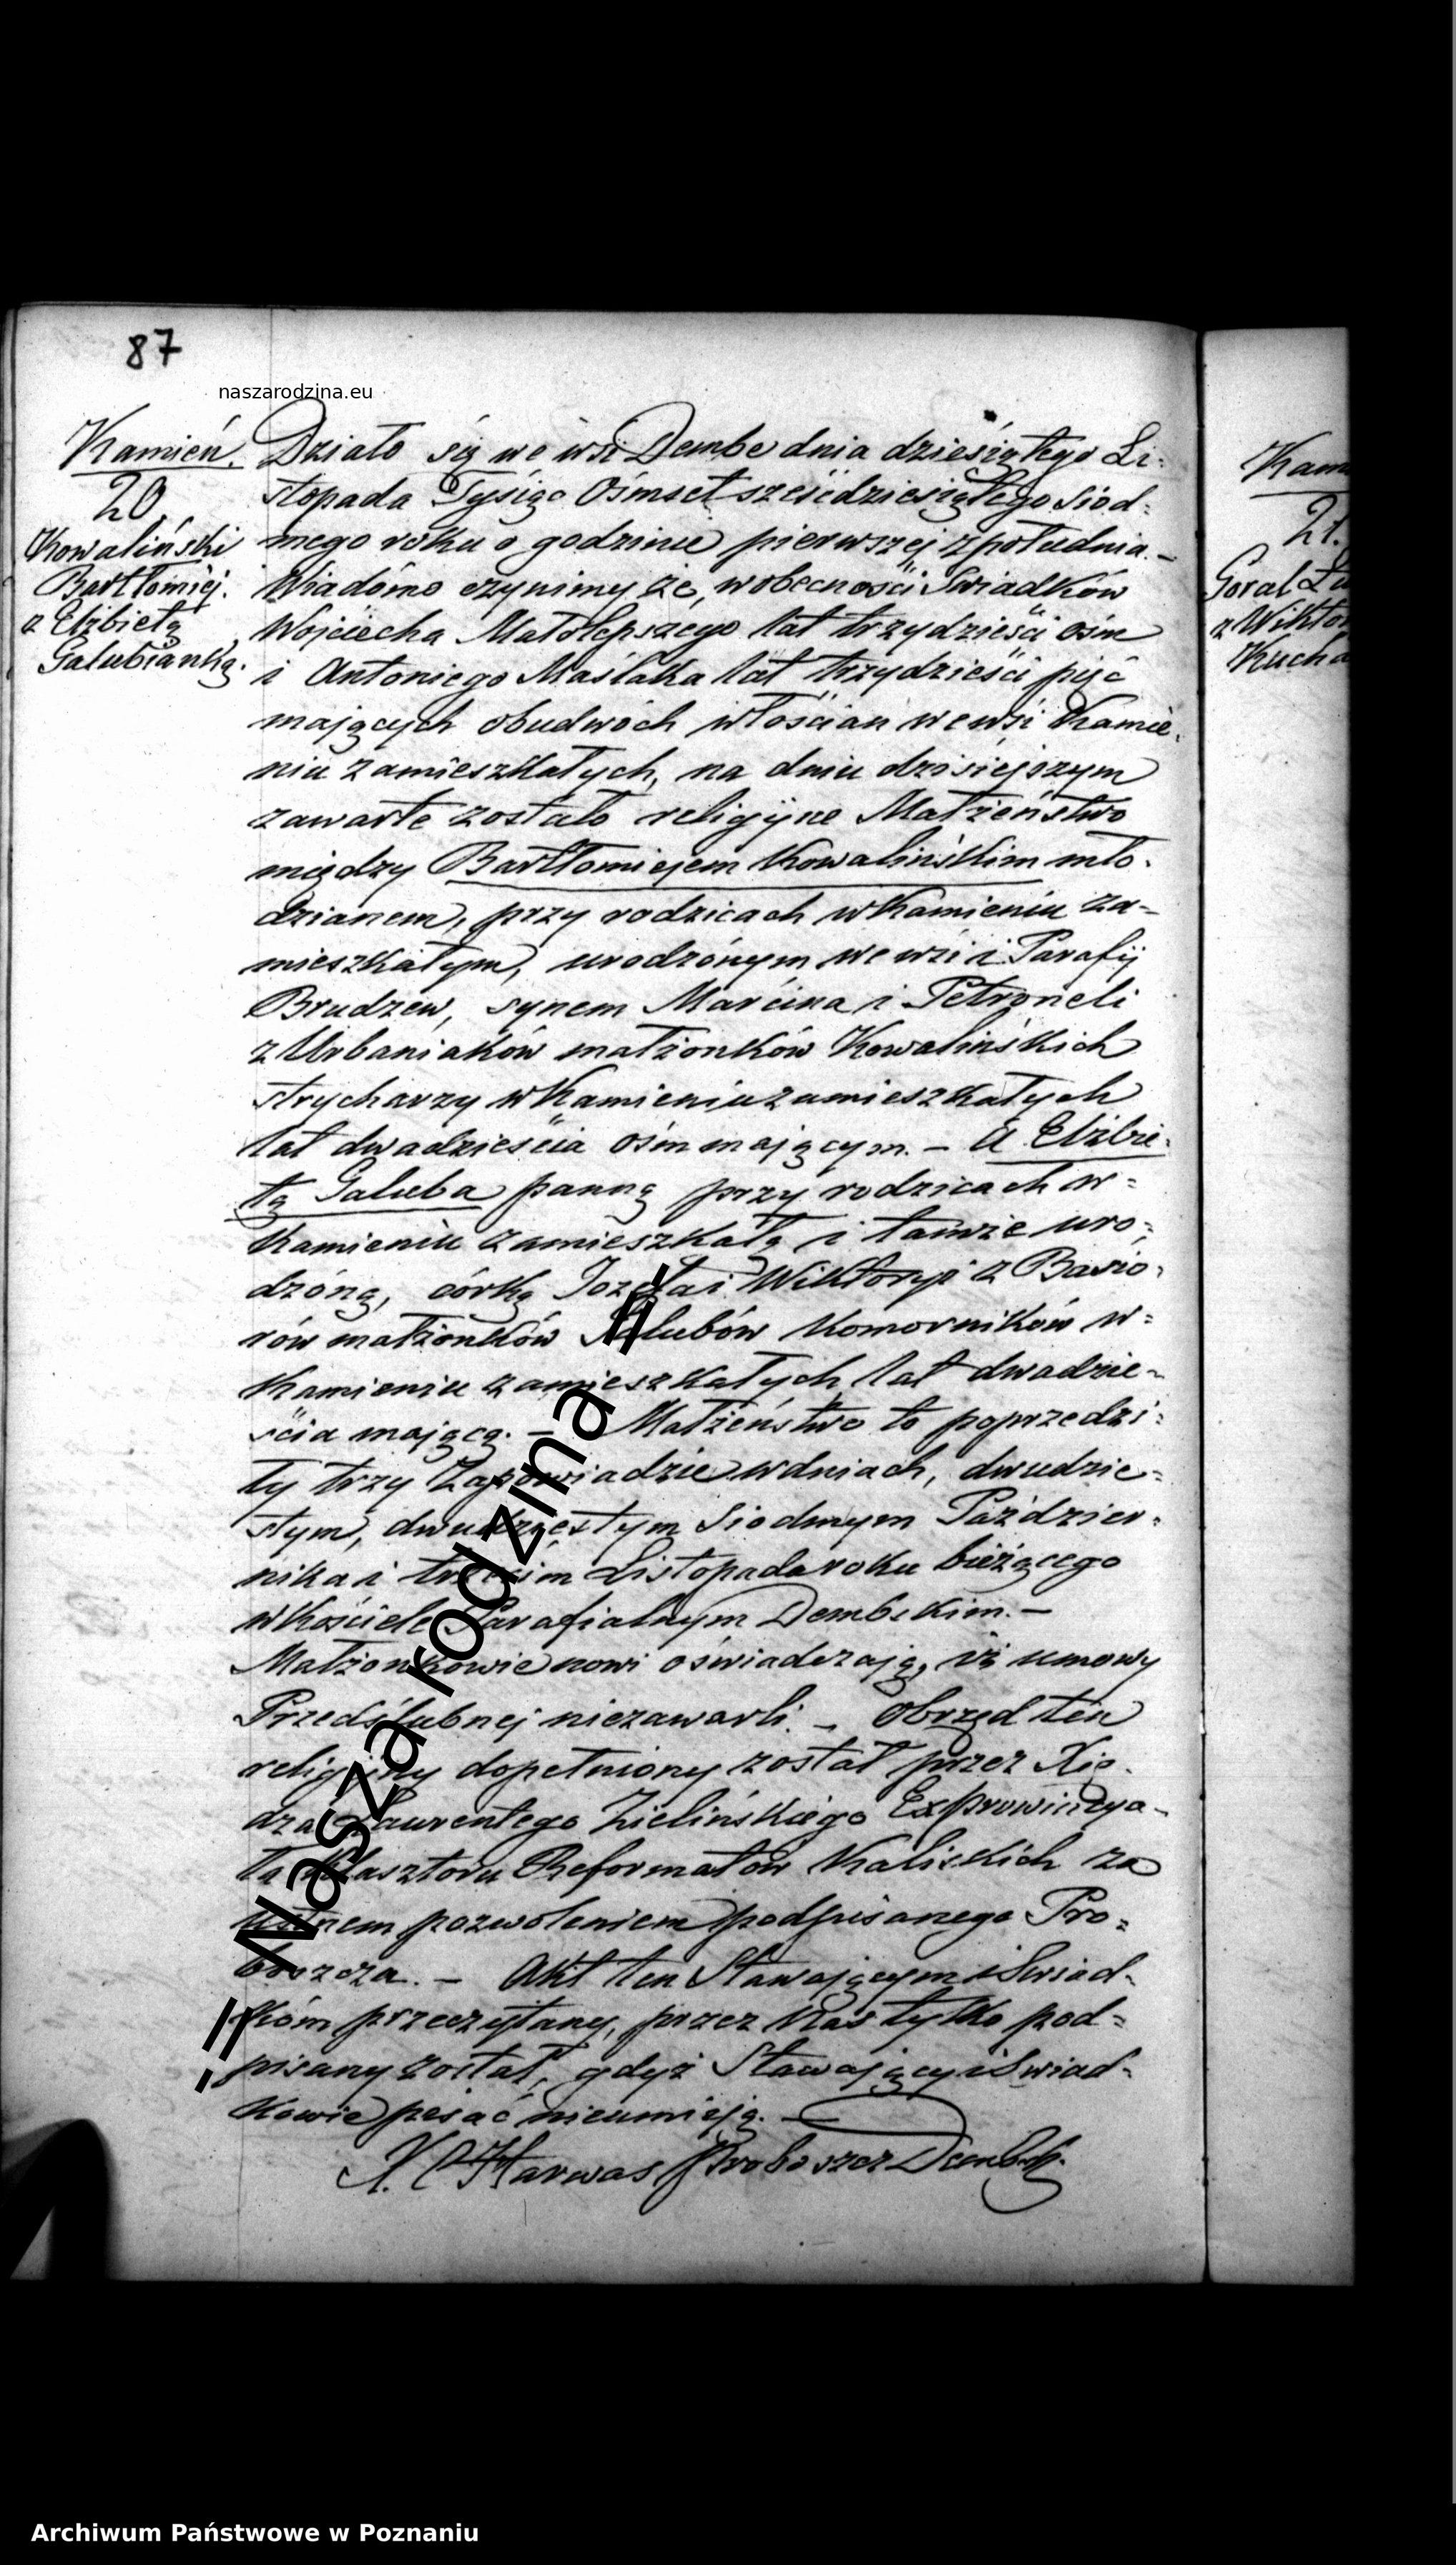 87
naszarodzina.eu
Kamień.
20
Kowaliński
Bartłomiej.
z Elżbietą
Galubianką.
Działo się we wsi Dembe dnia dziesiątego Li-
stopada Tysiąc Ośmset sześćdziesiątego siód-
mego roku o godzinie pierwszej z południa. –
Wiadomo czynimy że, w obecności Swiadków
Wojciecha Małolepszego lat trzydzieści ośm
i Antoniego Maślaka lat trzydzieści pięć
mających obudwóch włościan we wsi Kamie-
niu zamieszkałych, na dniu dzisiejszym
zawarte zostało religijne Małżeństwo
między Bartłomiejem Kowalińskim mło-
dzianem, przy rodzicach w Kamieniu za-
mieszkałym, urodzonym we wsi i Parafij
Brudzew, synem Marcina i Petroneli
z Urbaniaków małżonków Kowalińskich
strycharzy w Kamieniu zamieszkałych
lat dwadzieścia ośm mającym. – a Elżbie-
tą Galuba panną przy rodzicach w-
Kamieniu zamieszkałą i tamże uro-
dzoną, córką Józefa i Wiktoryi z Basio-
rów małżonków Galubów Komorników w-
Kamieniu zamieszkałych lat dwadzie-
ścia mającą. – Małżeństwo to poprzedzi-
ły trzy Zapowiadzie w dniach, dwudzie-
stym, dwudziestym siodmym Październ-
nika i trzecim Listopada roku bieżącego
w Kościele Parafialnym Dembskim. –
Małżonkowie nowi oświadczają, iż umowy
Przedślubnej niezawarli. – Obrzęd ten
religijny dopełniony został przez Xię-
dza Laurentego Zielińskiego Exprowincya-
ła Klasztoru Reformatów Kaliskich za
ustnem pozwoleniem podpisanego Pro-
boszcza. – Akt ten Stawającym i Swiad-
kom przeczytany, przez Nas tylko pod-
pisany został, gdyż Stawający i Swiad-
kowie pisać nieumieją. –
X. Harwas Proboszcz Dembski.
Kam
21.
Goral
z Wiktor
Kucha
-= Nasza rodzina =-
Archiwum Państwowe w Poznaniu